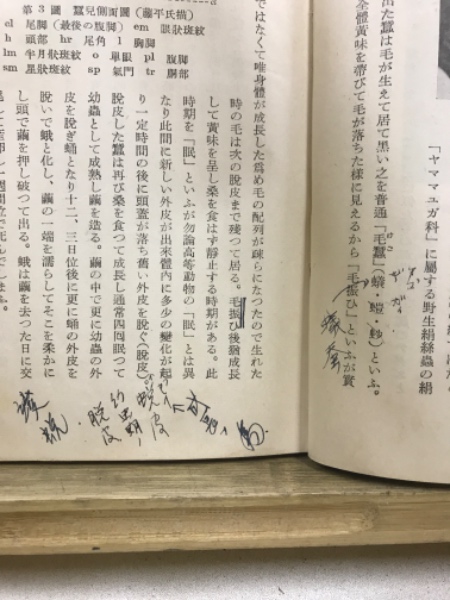 「ヤママユガ科」に屬する野生絹絲蟲の絹
出た蠶は毛が生えて居て黒い之を普通「毛蠶」(蟻・螘・𧈅)といふ。
全體黃味を帶びて毛が落ちた樣に見えるから「毛振ひ」といふが實
ではなくて唯身體が成長した爲め毛の配列が疎らになつたので生れた
時の毛は次の脫皮まで殘つて居る。毛振ひ後猶成長
して黃味を呈し桑を食はず靜止する時期がある。此
時期を「眠」といふが勿論高等動物の「眠」とは異
なり此間に新しい外皮が出來體內に多少の變化が起
り一定時間の後に頭蓋が落ち舊い外皮を脫ぐ(脫皮)。
脫皮した蠶は再び桑を食つて成長し通常四回眠つて
幼蟲として成熟し繭を造る。繭の中で更に幼蟲の外
皮を脫ぎ蛹となり十二、三日位後に更に蛹の外皮を
脫いで蛾と化し、繭の一端を濡らしてそこを柔かに
し頭で押し破つて出る。蛾は繭を去つた日に交
第3圖 蠶兒側面圖(藤平氏描)
el 尾脚(最後の腹脚) em 眼狀斑紋
h 頭部 hr 尾角 l 胸脚
lm 半月狀斑紋 o 單眼 pl 腹脚
sm 星狀斑紋 s 氣門 tr 胴部
脫皮
脫皮